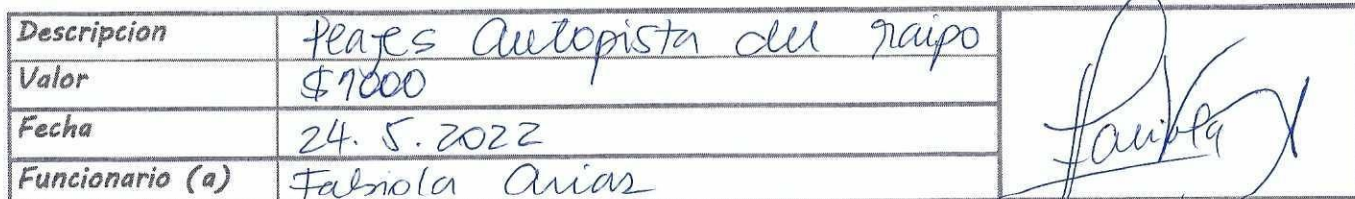 Descripcion Peajes Autopista del Maipo
Valor $1000
Fecha 24.5.2022
Funcionario (a) Fabiola Arias